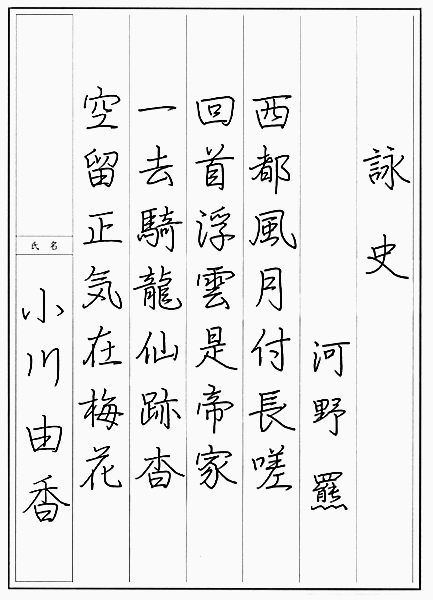 詠史
河野羆
西都風月付長嗟
回首浮雲是帝家
一去騎龍仙跡杳
空留正気在梅花
氏名
小川由香